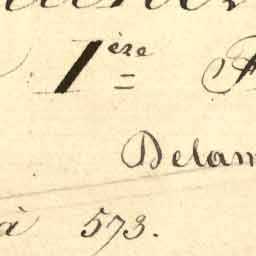 1ère F
Delam
à 573.